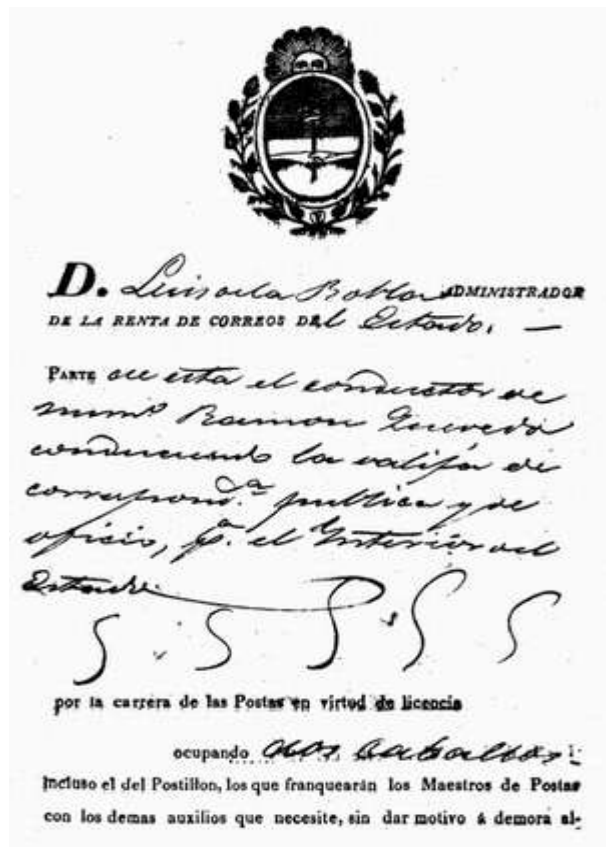 D. Luis de la Robla ADMINISTRADOR
DE LA RENTA DE CORREOS DEl Estado.
PARTE de esta el conductor de
num.º Ramon Quevedo
conduciendo la valija de
correspond.ª publica y de
oficio, p.ª el Interior del
Estado
por la carrera de las Postas en virtud de licencia
ocupando dos caballos
incluso el del Postillon, los que franquearán los Maestros de Postas
con los demas auxilios que necesite, sin dar motivo á demora al-